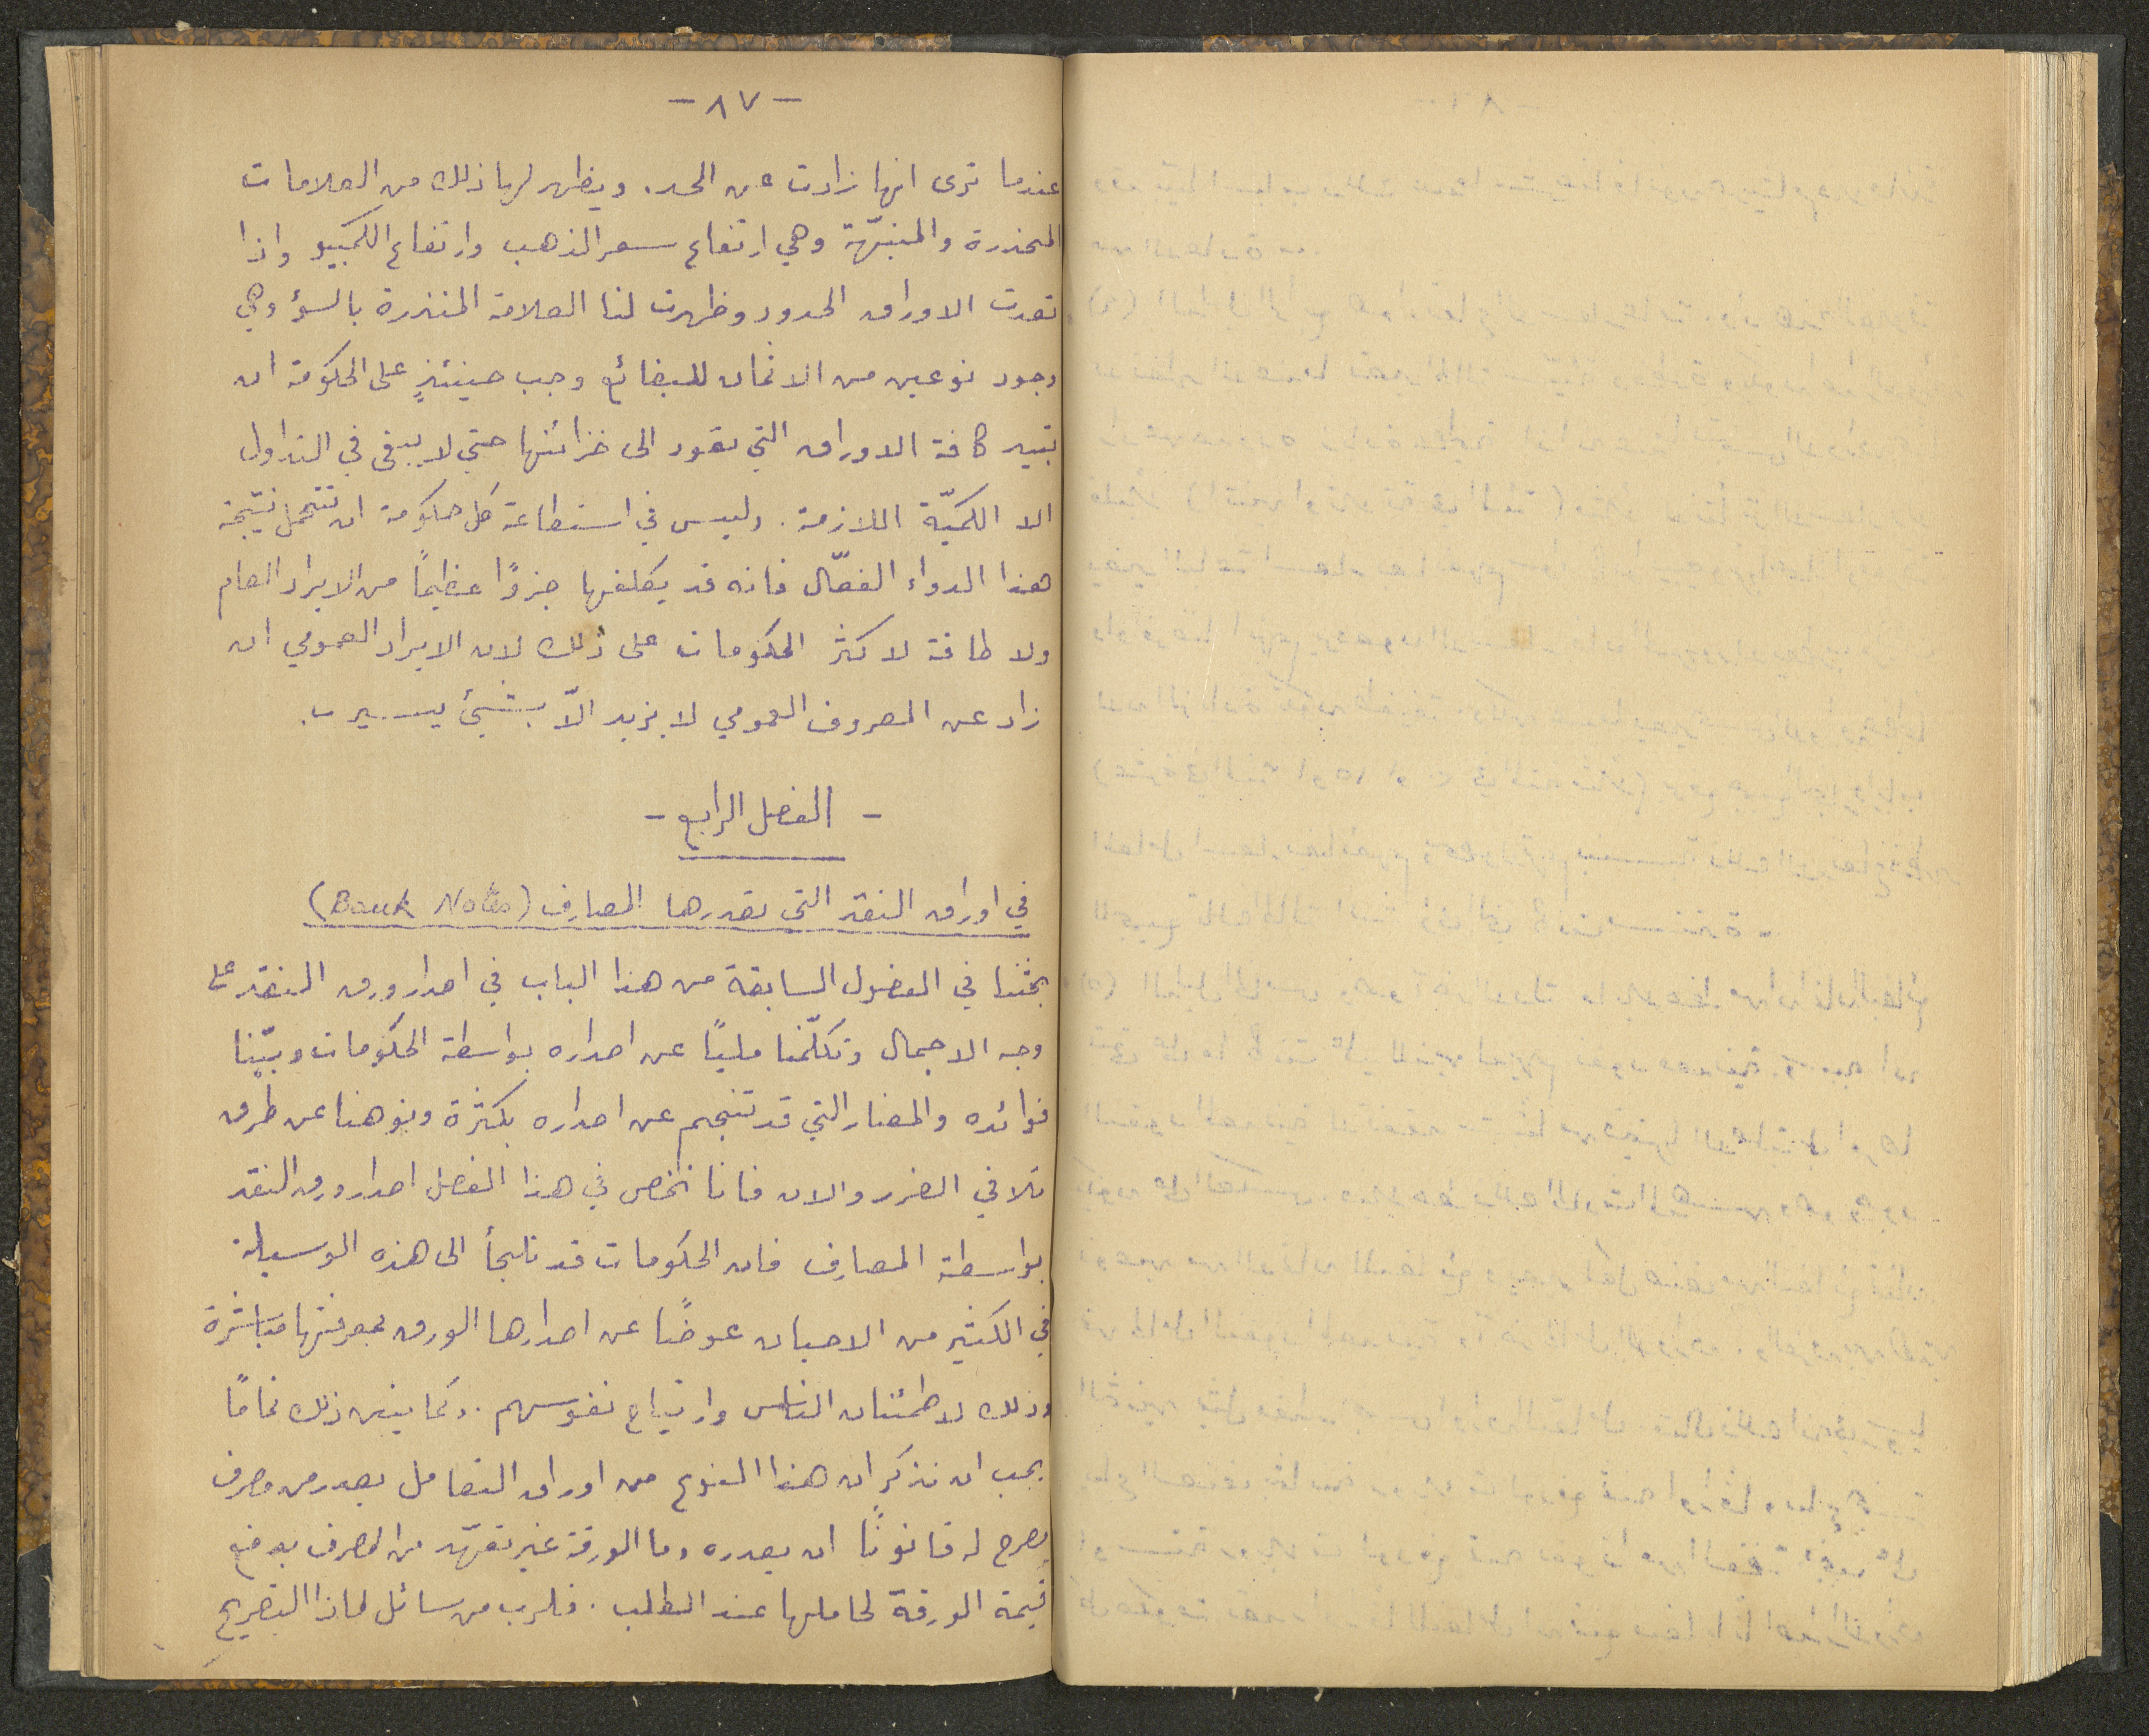 - ٨٧ -
عندما ترى انها زادت عن الحد. ويظهر لها ذلك من العلامات
المحذرة والمنبّهة وهي ارتفاع سعر الذهب وارتفاع الكمبيو واذا
تعدت الاوراق الحدود وظهرت لنا العلامة المنذرة بالسؤ وهي
وجود نوعين من الاثمان للبضائع وجب حينئذٍ على الحكومة ان
تبيد كافة الاوراق التي تعود الى خزائنها حتى لا يبقى في التداول
الا الكميّة اللازمة. وليس في استطاعة كل حكومة ان تتحمل نتيجة
هذا الدواء الفعّال فانه قد يكلفها جزءًا عظيماً من الايراد العام
ولا طاقة لاكثر الحكومات على ذلك لان الايراد العمومي ان
زاد عن المصروف العمومي لا يزيد الاّ بشيء يسير.
- الفصل الرابع -
في اوراق النقد التي تصدرها المصارف (Bank Notes)
بحثنا في الفصول السابقة من هذا الباب في اصدار ورق النقد على
وجه الاجمال وتكلّمنا مليًا عن اصداره بواسطة الحكومات وبيّنا
فوائده والمضار التي قد تنجم عن اصداره بكثرة ونوهنا عن طرق
تلافي الضرر والان فانا نخص في هذا الفصل اصدار ورق النقد
بواسطة المصارف فان الحكومات قد تلجأ الى هذه الوسيلة
في الكثير من الاحيان عوضًا عن اصدارها الورق بمعرفتها مباشرة
وذلك لاطمئنان الناس وارتياح نفوسهم. ذلك تمامًا
يجب ان نذكر ان هذا النوع من اوراق التعامل يصدر من مصرف
يصرح له قانونًا ان يصدره وما الورقة غير تعهّد من المصرف بدفع
قيمة الورقة لحاملها عند الطلب. فلرب من سائل لماذا التصريح